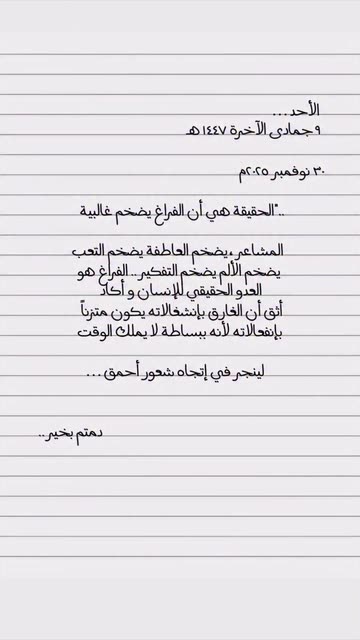 الأحد...
٩ جمادى الآخرة ١٤٤٧ هـ
٣٠ نوفمبر ٢٠٢٥م
.."الحقيقة هي أن الفراغ يضخم غالبية
المشاعر ، يضخم العاطفة يضخم التعب
يضخم الألم يضخم التفكير .. الفراغ هو
العدو الحقيقي للإنسان و أكاد
أثق أن الغارق بإنشغالاته يكون متزناً
بإنفعالاته لأنه ببساطة لا يملك الوقت
لينجر في إتجاه شعور أحمق ...
دمتم بخير..